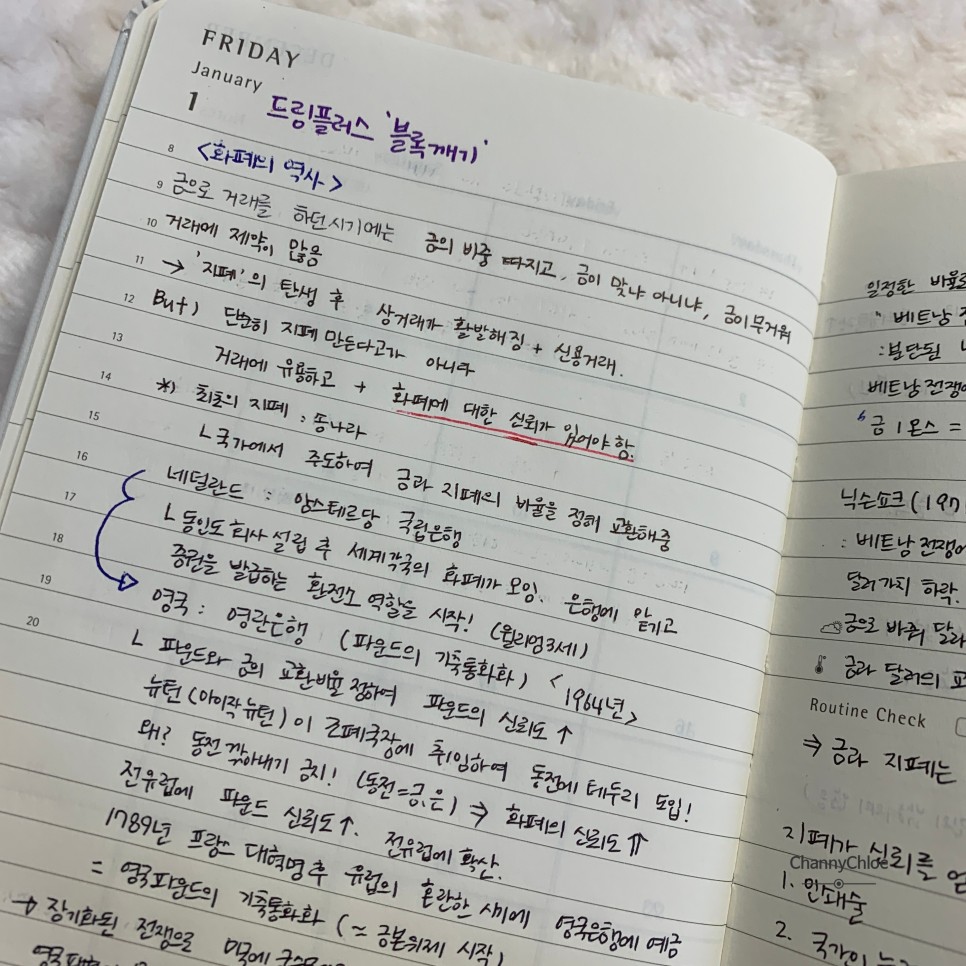 FRIDAY
January
1
드림플러스 '블록깨기'
8 <화폐의 역사>
9 금으로 거래를 하던시기에는 금의 비중 따지고, 금이 맞냐 아니냐, 금이무거워
10 거래에 제약이 많음
11 → '지폐'의 탄생 후 상거래가 활발해짐 + 신용거래.
12 But) 단순히 지폐 만든다고가 아니라
13 거래에 유용하고 + 화폐에 대한 신뢰가 있어야 함.
14 *) 최초의 지폐 : 송나라
15 ㄴ국가에서 주도하여 금과 지폐의 비율을 정해 교환해줌
16 네덜란드 : 암스테르담 국립은행
17 ㄴ동인도 회사 설립 후 세계각국의 화폐가 모임. 은행에 맡기고
18 증권을 발급하는 환전소 역할을 시작! (윌리엄3세)
19 영국 : 영란은행 (파운드의 기축통화화) <1964년>
20 ㄴ 파운드와 금의 교환비율 정하여 파운드의 신뢰도 ↑
뉴턴(아이작뉴턴)이 조폐국장에 취임하여 동전에 테두리 도입!
왜? 동전 깎아내기 금지! (동전=금,은) ⇒ 화폐의 신뢰도 ⇑
전유럽에 파운드 신뢰도↑. 전유럽에 확산.
1789년 프랑스 대혁명 후 유럽의 혼란한 시기에 영국은행에 예금
= 영국파운드의 기축통화화 (≈ 금본위제 시작)
→ 장기화된 전쟁으로 미국에
일정한 비율로
" 베트남
: 분단된
베트남전쟁
금 1온스 =
닉슨쇼크 (197
: 베트남전쟁
달러가치 하락.
금으로 바꿔 달라
금과 달러의
Routine Check
⇒ 금과 지폐는
지폐가 신뢰를
ChannyChloe
1. 인쇄술
2. 국가이